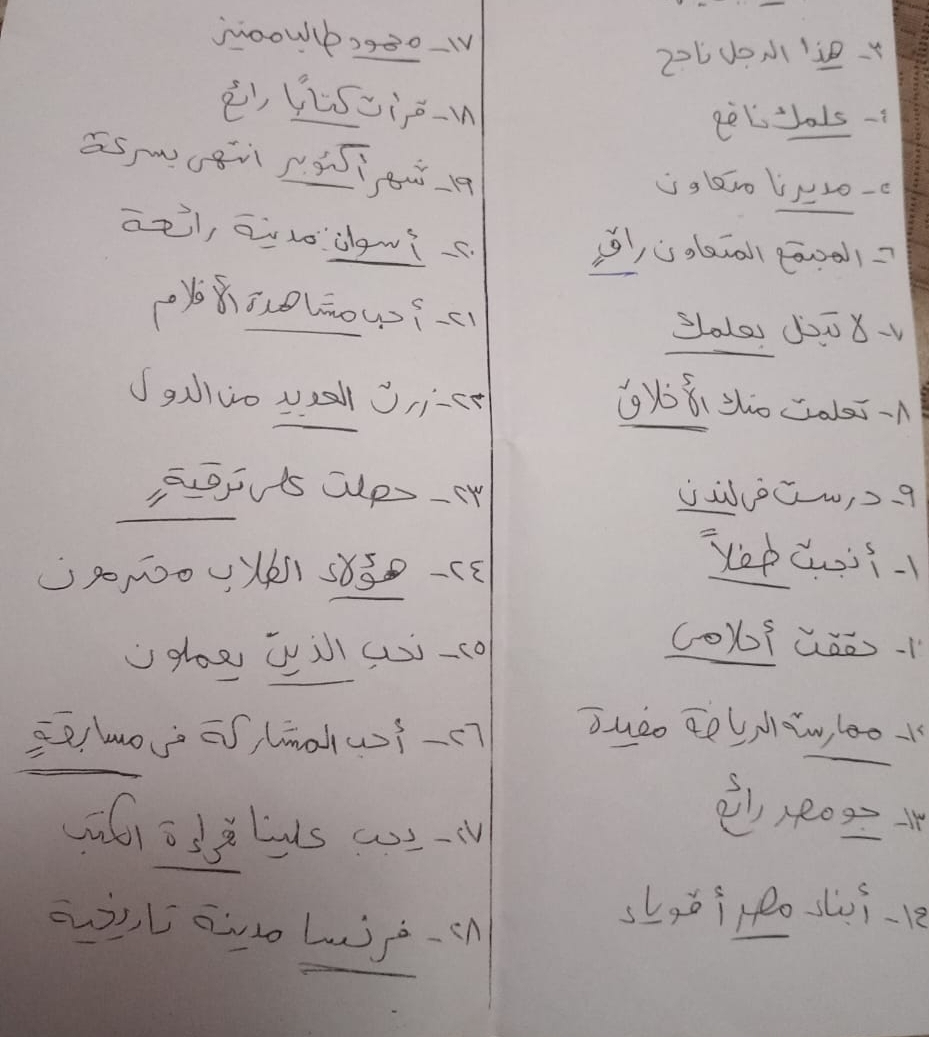 ٣- هذا الرجل ناجح
٤- علمك نافع
٥- مديرنا متعاون
٦- المجتمع المتعاون راقٍ
٧- لا تبخل بعلمك
٨- تعلمت منك الأخلاق
٩- درست في لندن
١- أنجبت طفلاً
١٠- حققت أحلامى
١٢- ممارسة الرياضة مفيدة
١٣- جو مصر رائع
١٤- أبناء مصر أقوياء
١٧- محمود طالب مميز
١٨- قرأت كتابًا رائع
١٩- شهر أكتوبر انتهى بسرعة
٢٠- أسوان مدينة رائعة
٢١- أحب مشاهدة الأفلام
٢٢- زرت العديد من الدول
٢٣- حصلت على ترقيةٍ
٢٤- هؤلاء الطلاب محترمون
٢٥- نحب الذين يعملون
٢٦- أحب المشاركة في مسابقةٍ
٢٧- يجب علينا قراءة الكتب
٢٨- فرنسا مدينة تاريخية